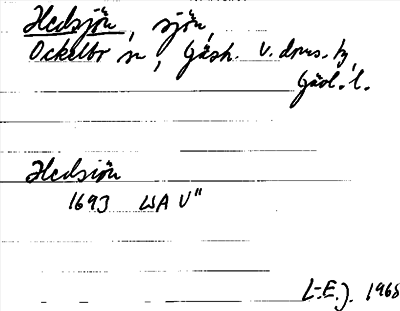 Hedsjön, sjön,
Ockelbo sn, Gästr. v. doms. hd,
Gävl. l.
Hedsiön
1693 LAV"
L-E.J. 1968